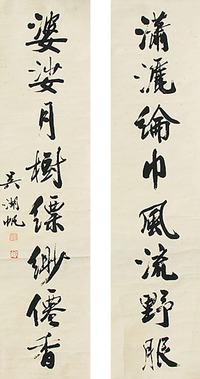 瀟灑綸巾風流野服
婆娑月樹縹緲僊香
吳湖帆